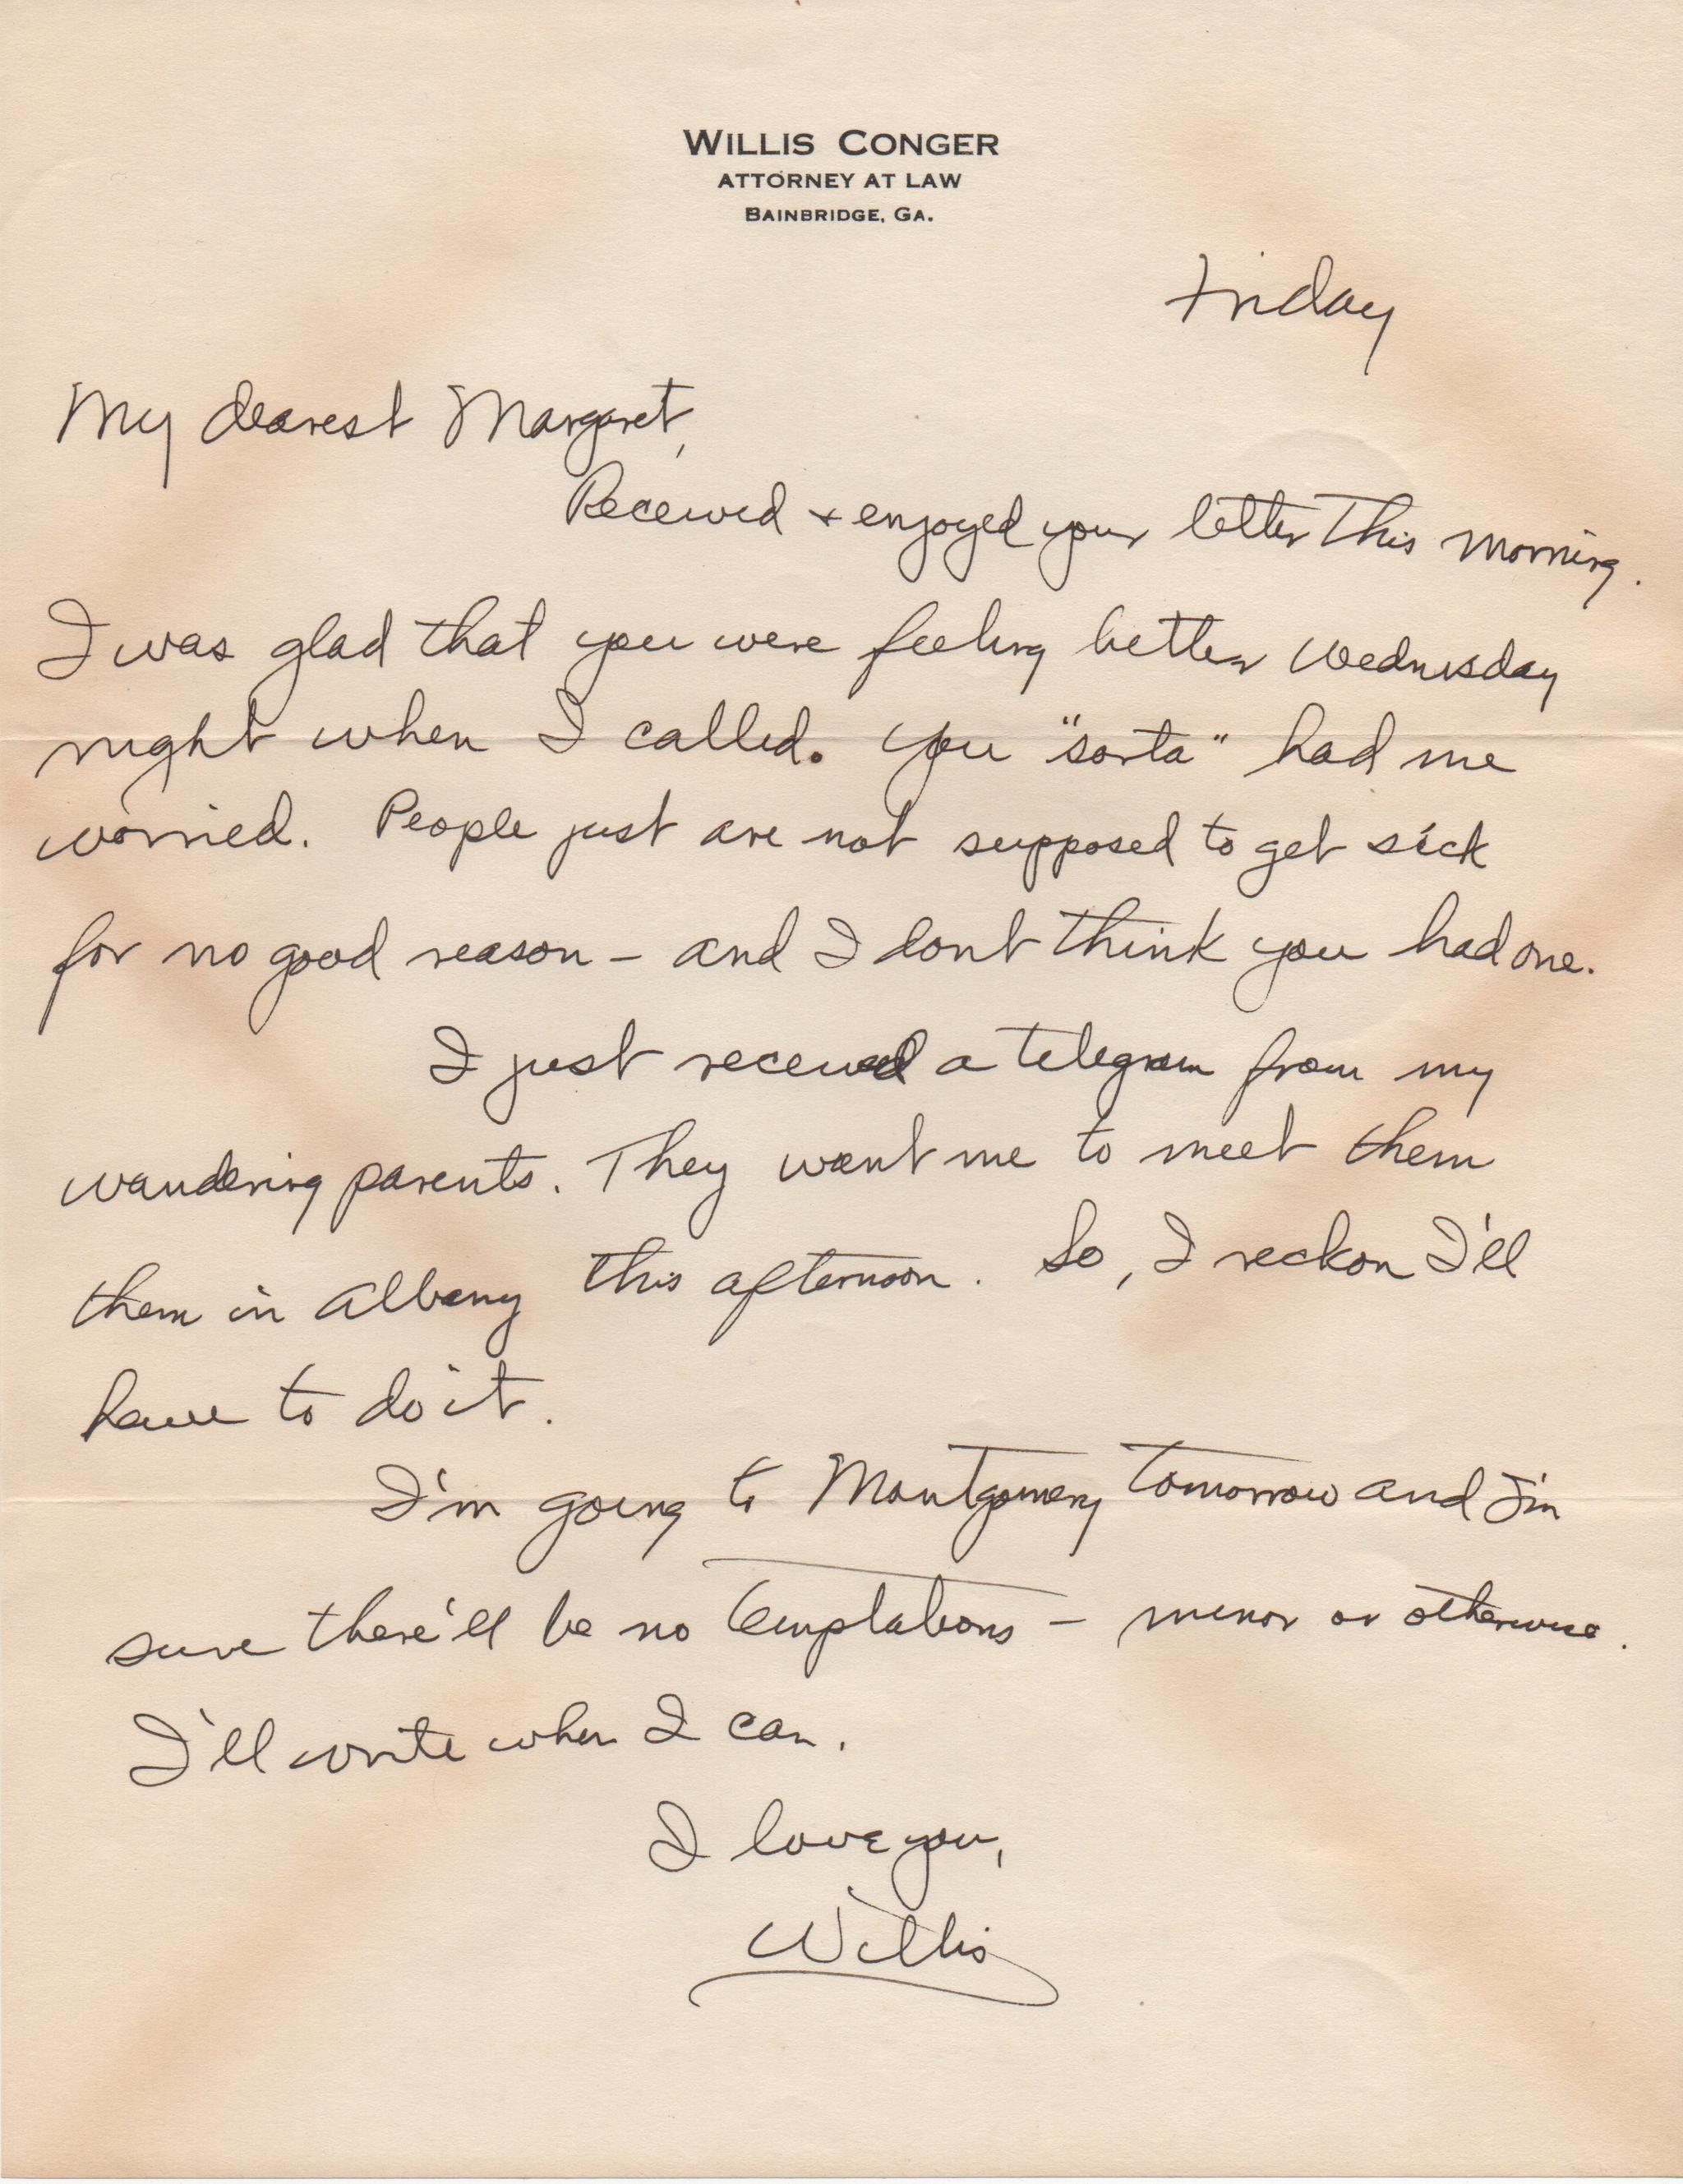 WILLIS CONGER
ATTORNEY AT LAW
BAINBRIDGE, GA.
Friday
My dearest Margaret,
Received + enjoyed your letter this morning.
I was glad that you were feeling better Wednesday
night when I called. You "sorta" had me
worried. People just are not supposed to get sick
for no good reason – and I dont think you had one.
I just received a telegram from my
wandering parents. They want me to meet them
them in Albany this afternoon. So, I reckon I'll
have to do it.
I'm going to Montgomery tomorrow and I'm
sure there'll be no temptations – minor or otherwise.
I'll write when I can.
I love you,
Willis